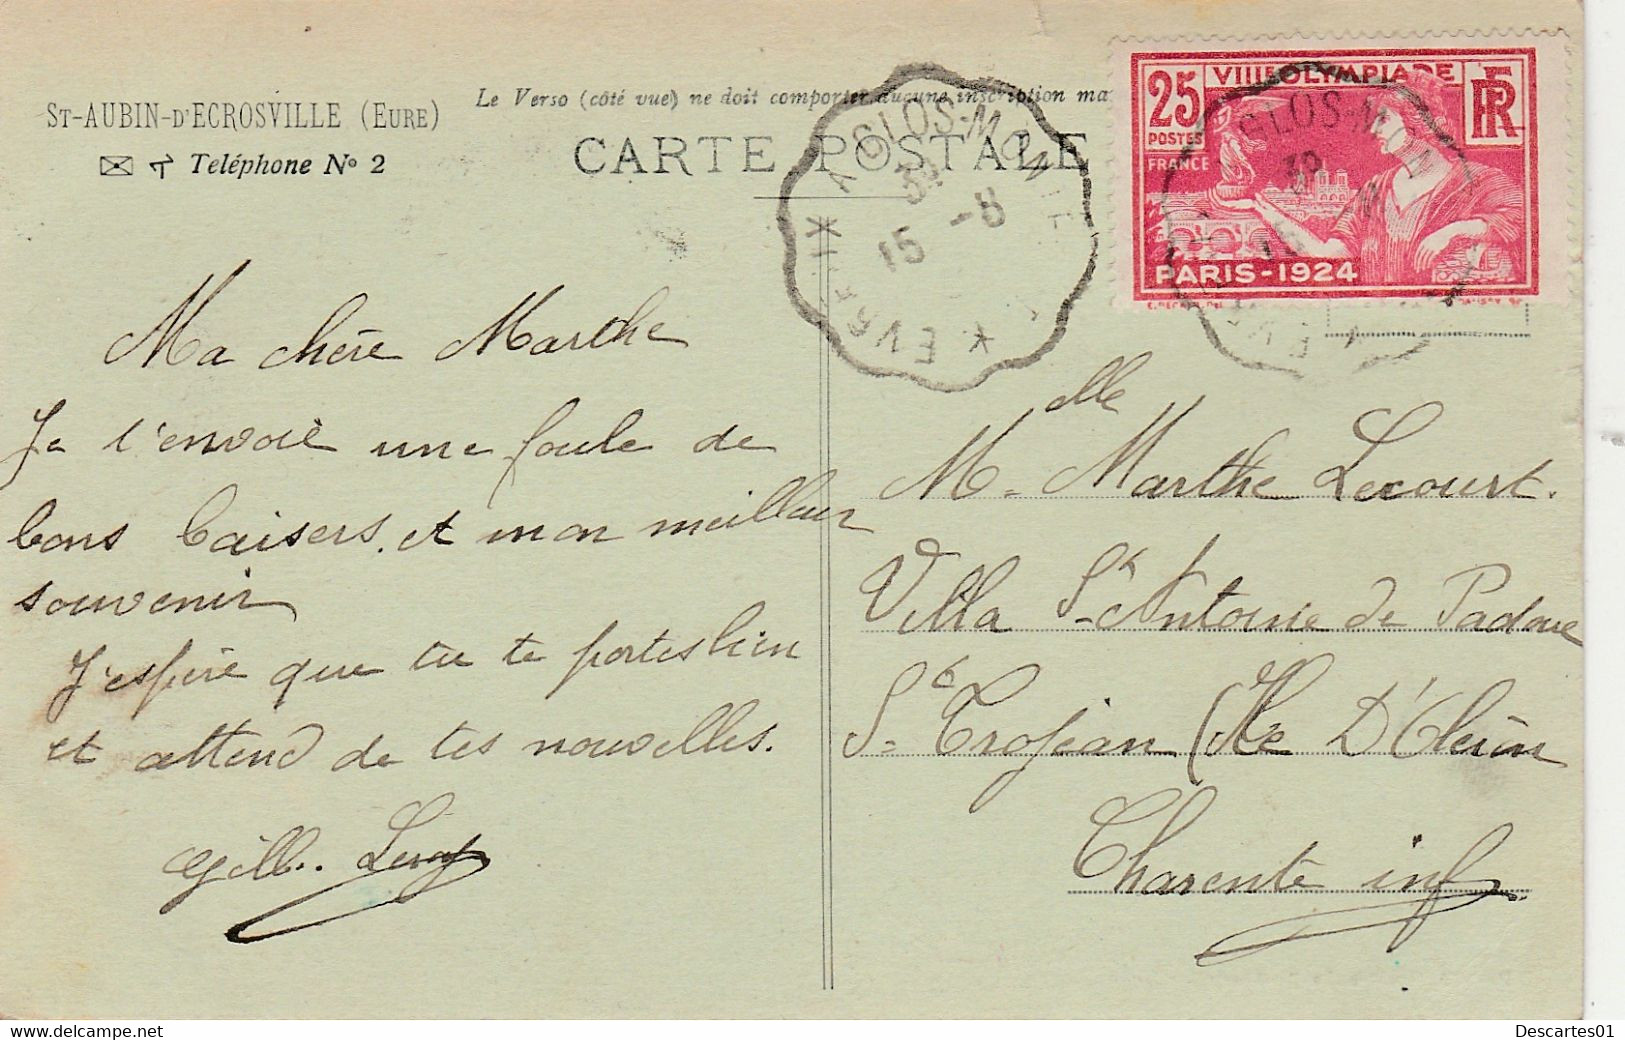 ST-AUBIN-D'ECROSVILLE (EURE)
Teléphone No 2
Le Verso (côté vue) ne doit comporter aucune inscription ma
CARTE POSTALE
GLOS-MONT
39
15 -8
EVR
25
POSTES
FRANCE
VIIIE OLYMPIADE
RF
PARIS-1924
Ma chère Marthe
Je t'envoie une foule de
bons baisers. et mon meilleur
souvenir
J'espère que tu te portes bien
et attend de tes nouvelles.
Melle Marthe Lecourt.
Villa St Antoine de Padoue
St Trojean (Ile D'Oléron
Charente inf
Descartes01